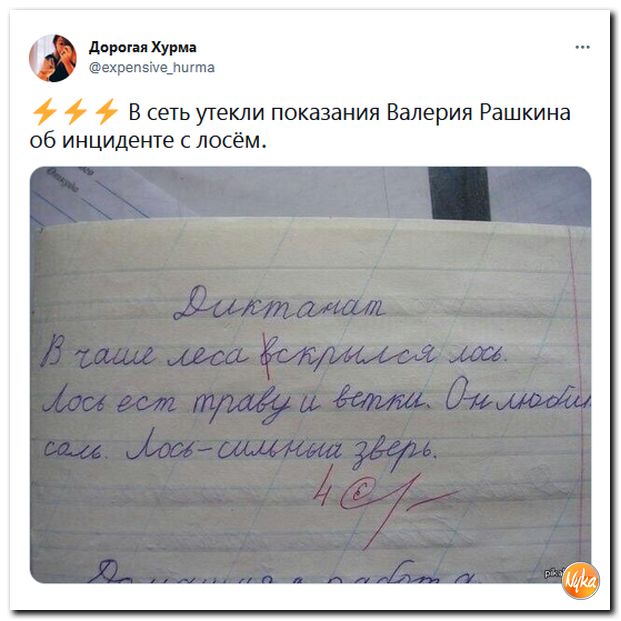 Дорогая Хурма
@expensive_hurma
⚡⚡⚡ В сеть утекли показания Валерия Рашкина
об инциденте с лосём.
Диктанат
В чаше леса вскрылся лось.
Лось ест траву и ветки. Он любит
соль. Лось-сильный зверь.
4
Домашняя работа
Nyka